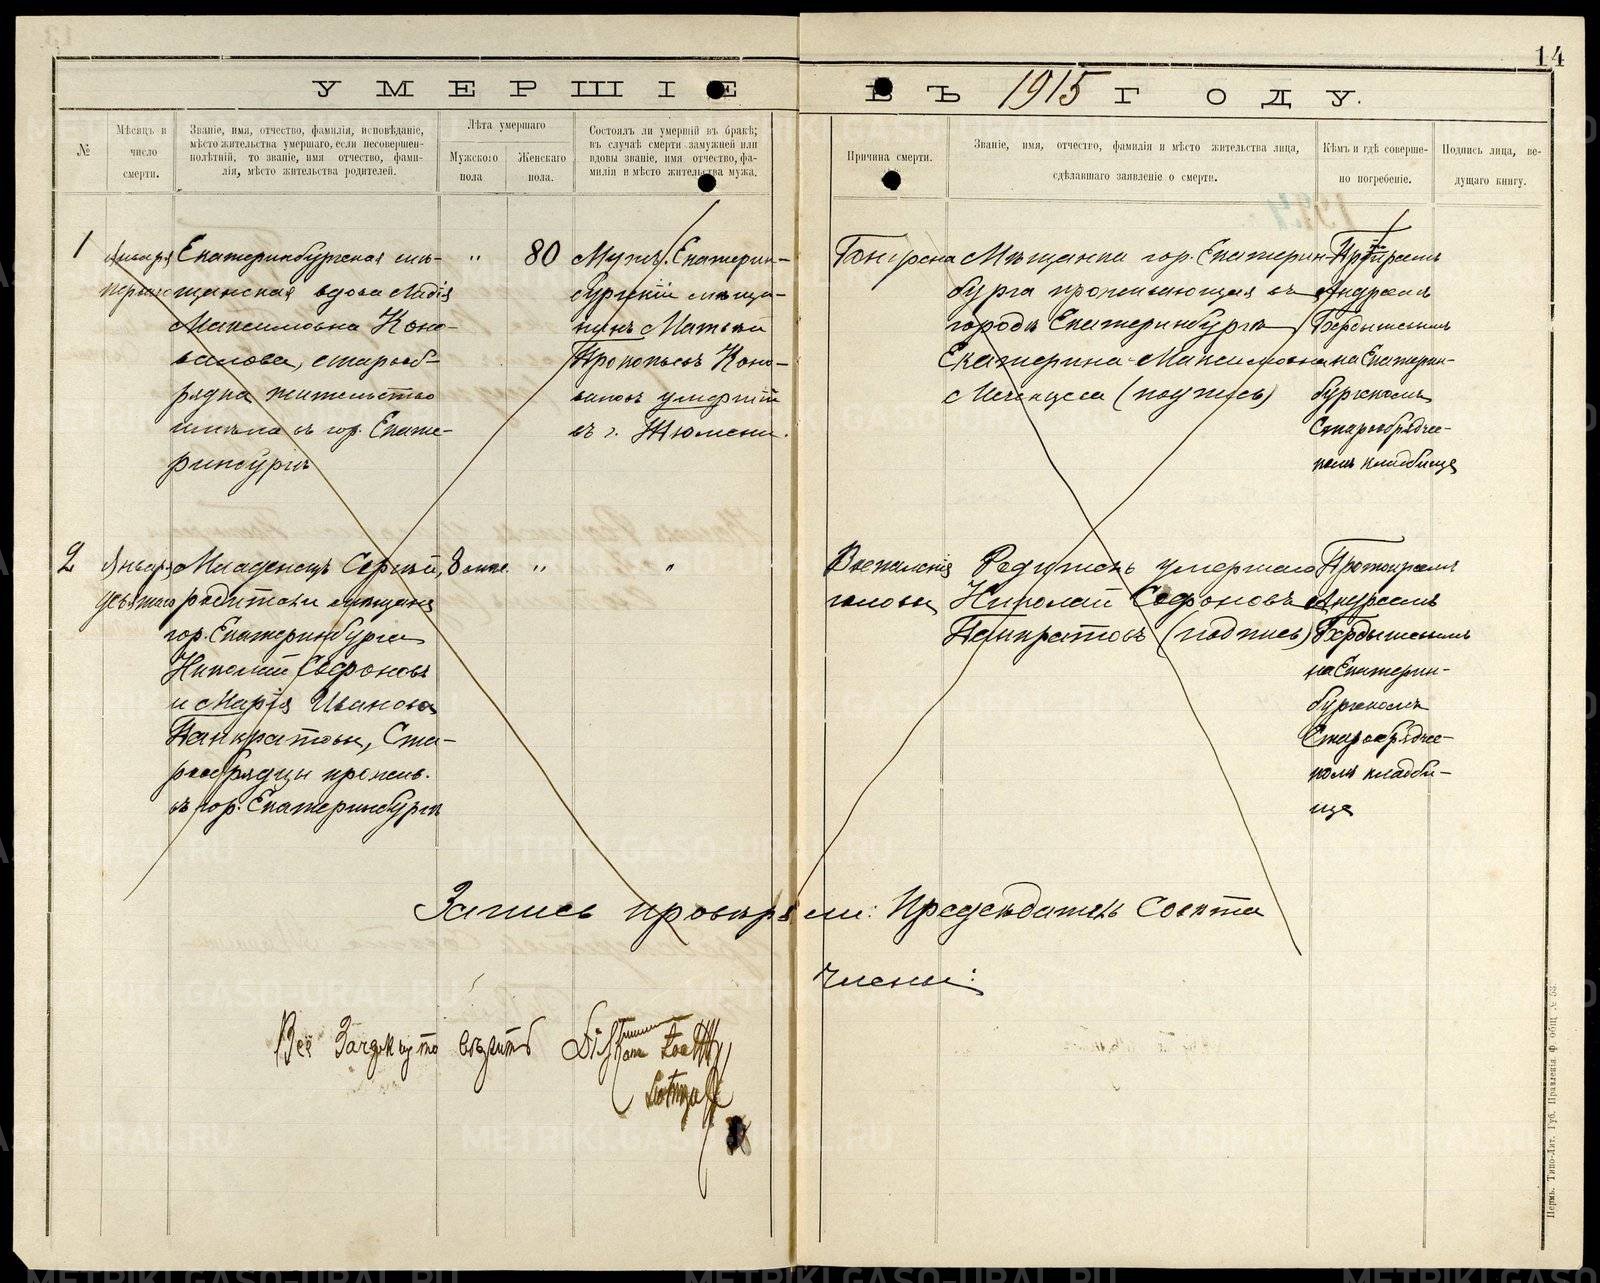 14
УМЕРШІЕ ВЪ 1915 ГОДУ.
№
Мѣсяцъ и
число
смерти.
Званіе, имя, отчество, фамилія, исповѣданіе,
мѣсто жительства умершаго, если несовершен-
нолѣтній, то званіе, имя отчество, фами-
лія, мѣсто жительства родителей.
Лѣта умершаго
Мужского
пола
Женскаго
пола.
Состоялъ ли умершій въ бракѣ;
въ случаѣ смерти замужней или
вдовы званіе, имя отчество, фа-
милія и мѣсто жительства мужа.
Причина смерти.
Званіе, имя, отчество, фамилія и мѣсто жительства лица,
сдѣлавшаго заявленіе о смерти.
Кѣмъ и гдѣ соверше-
но погребеніе.
Подпись лица, ве-
дущаго книгу.
1
Января
перваго
Екатеринбургская мѣ-
щанская вдова Лидія
Максимовна Коно-
валова, старооб-
рядка жительство
имѣла въ гор. Екате-
ринбургѣ
"
80
Мужъ: Екатерин-
бургскій мѣща-
нинъ Матвѣй
Прокопьевъ Коно-
валовъ умершій
въ г. Тюмени.
Гангрена
Мѣщанка гор. Екатерин-
бурга проживающая въ
городѣ Екатеринбургѣ
Екатерина Максимовна
(подпись)
Андреемъ
на Екатерин-
бургскомъ
Старообрядче-
комъ кладбищѣ
2
Января
девятаго
Младенецъ Сергѣй,
родители мѣщане
гор. Екатеринбурга
Николай Софоновъ
и Марія Иванова
Панкратовы, Ста-
рообрядцы прожив.
въ гор. Екатеринбургѣ
8 мѣс.
"
"
Воспаленіе
головы
Родитель умершаго
Николай Софоновъ
Панкратовъ (подпись)
Протоіереемъ
Андреемъ
на Екатерин-
бургскомъ
Старообрядче-
комъ кладби-
щѣ
Запись провѣряли: Предсѣдатель Совѣта
Члены:
Всё Зачеркнуто
Пермь. Типо-Лит. Губ. Правленія Ф. общ. № 63.
METRIKI.GASO-URAL.RU